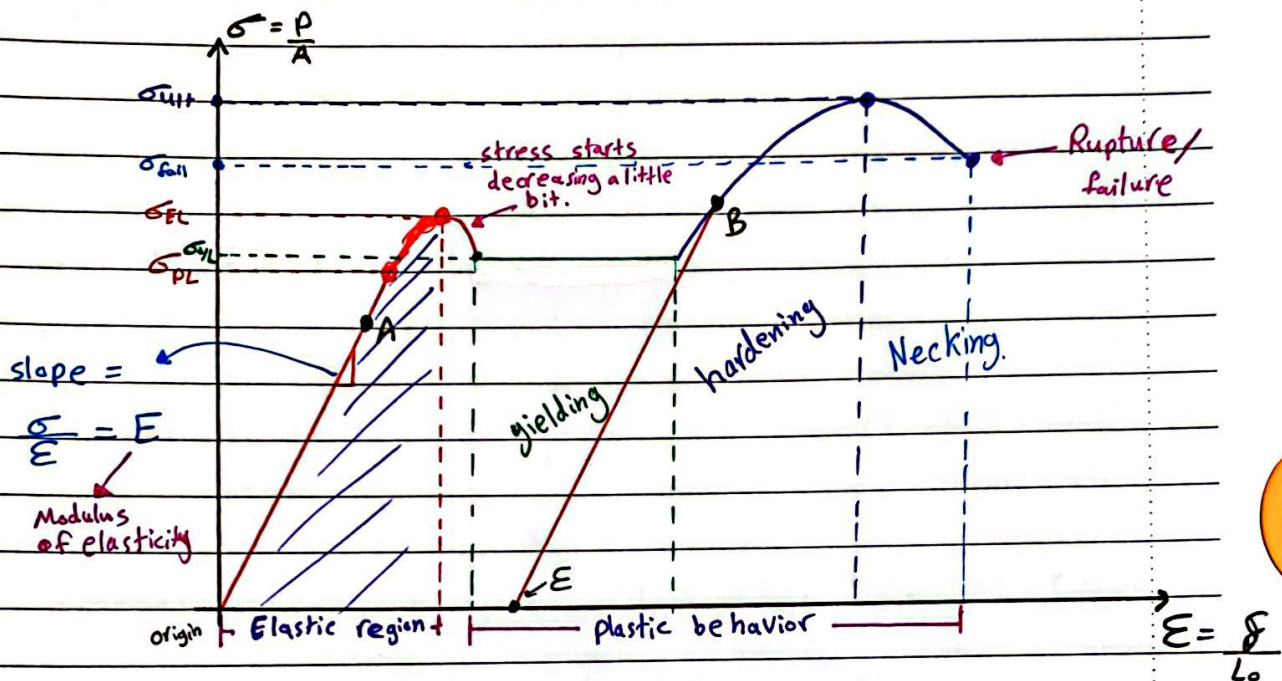 σ = P/A
σult
σfail
stress starts
decreasing a little
bit.
Rupture/
failure
σEL
σY/L
σPL
B
A
slope =
σ/ε = E
Modulus
of elasticity
yielding
hardening
Necking.
ε
origin
Elastic region
plastic behavior
ε = δ/L₀